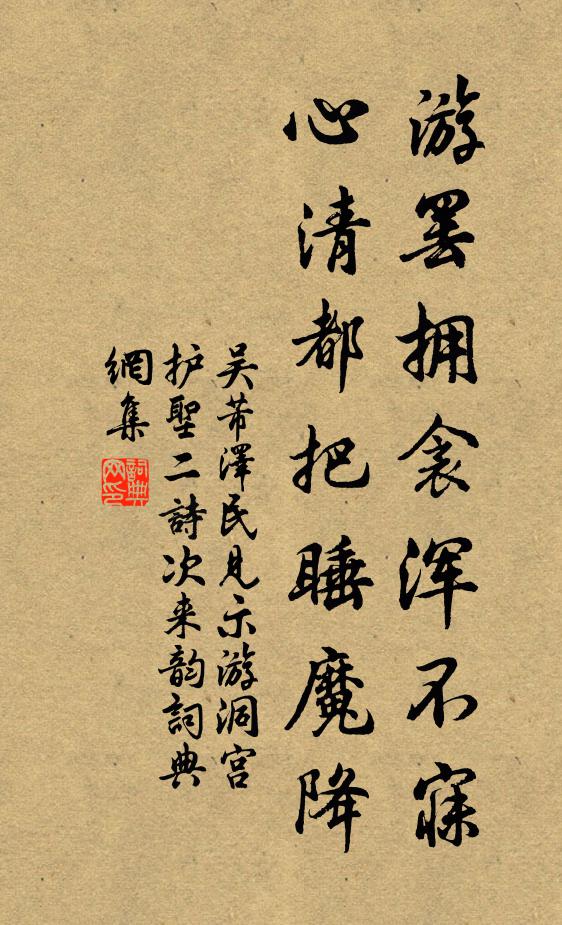 游罢拥衾浑不寐
心清都把睡魔降
吴芾泽民見示游洞宫
护聖二詩次来韵詞典
網集
詞典
网印